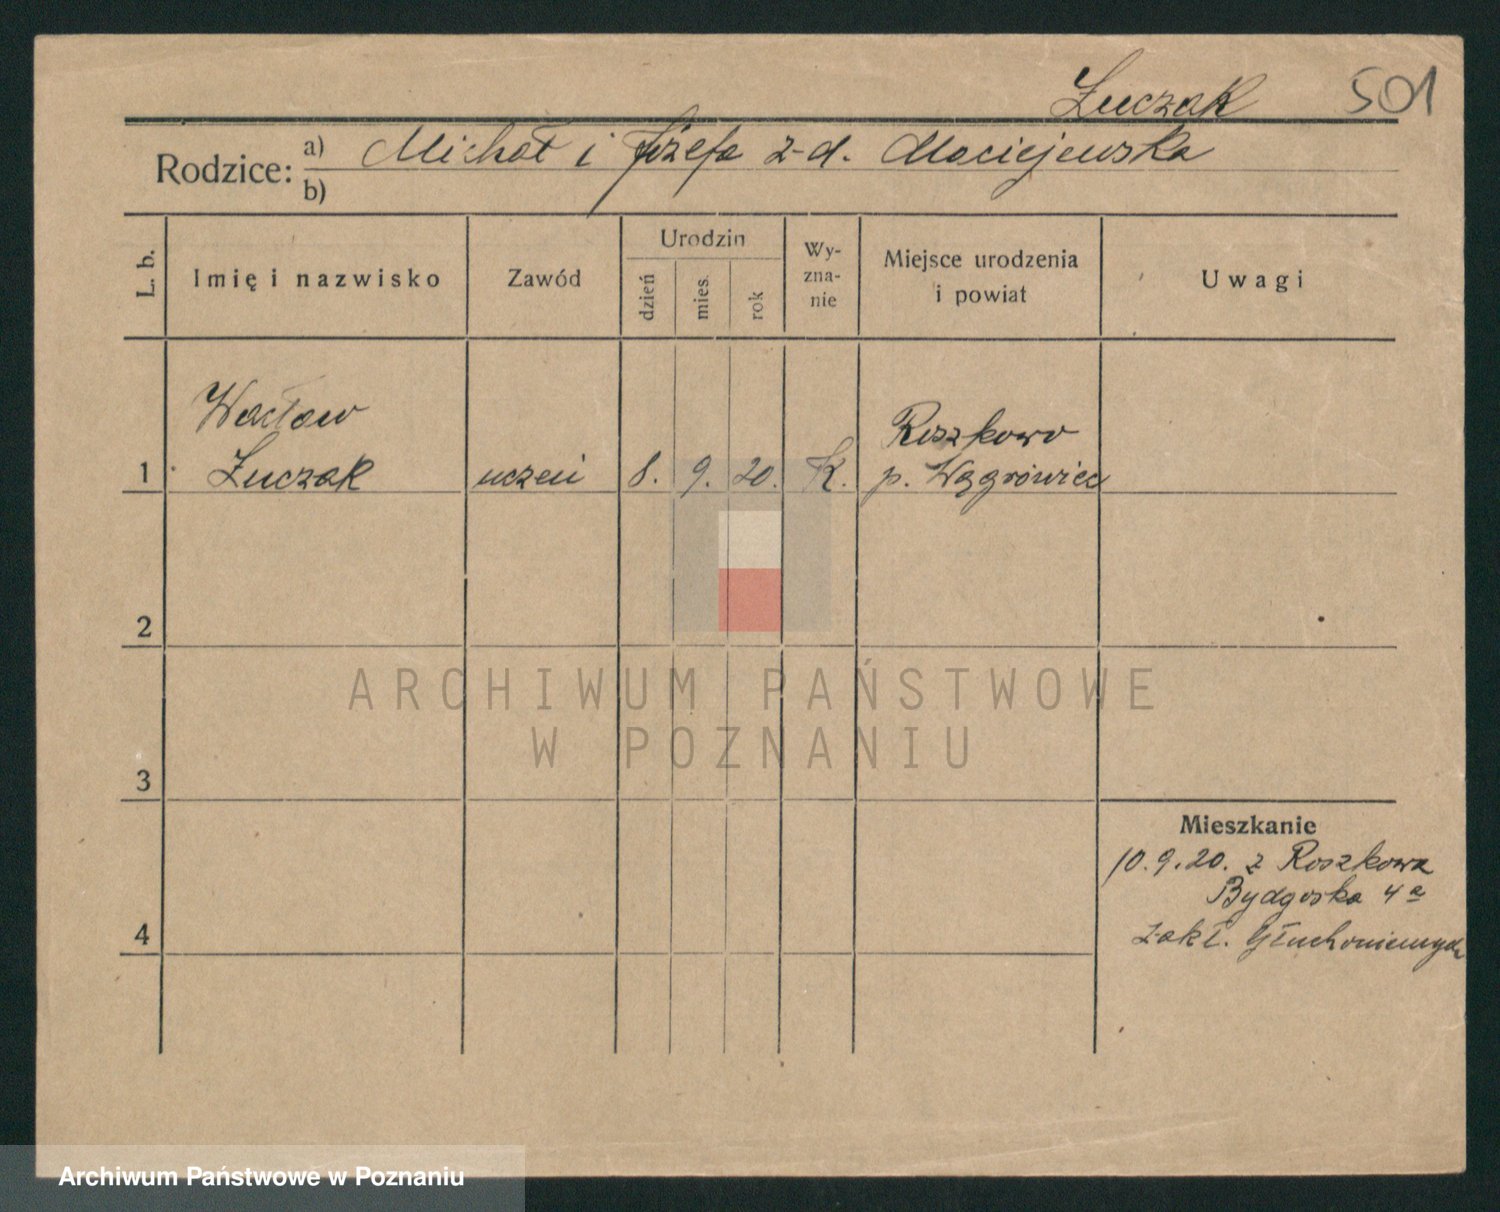 Łuczak 501
Rodzice: a) Michał i Józefa z-d. Maciejewska
b)
L. b. Imię i nazwisko Zawód Urodzin dzień mies. rok Wy-zna-nie Miejsce urodzenia i powiat Uwagi
Wacław Roszkowo
1 Łuczak uczeń 8. 9. 20. K. p. Wągrówiec
2
ARCHIWUM PAŃSTWOWE
W POZNANIU
3
Mieszkanie
10.9.20. z Roszkowa
Bydgoska 4a
4 zakł. Głuchoniemych
Archiwum Państwowe w Poznaniu